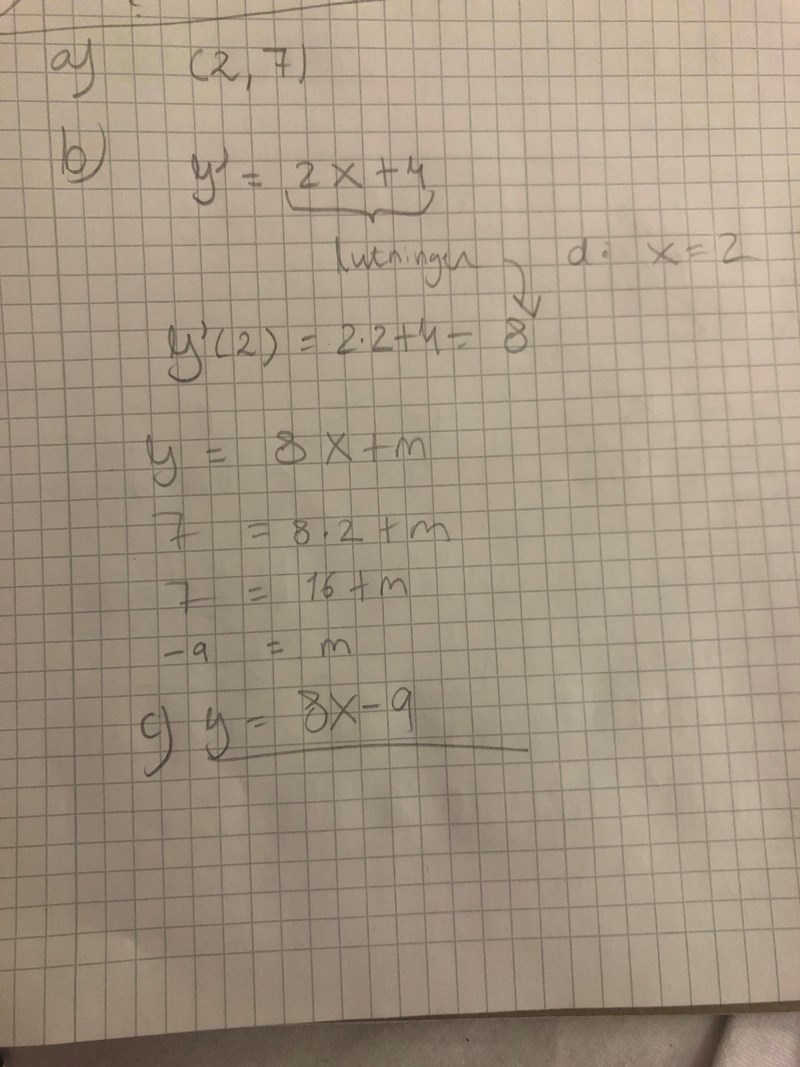 a) (2,7)
b) y' = 2x+4
lutningen d: x=2
y'(2) = 2·2+4= 8
y = 8x+m
7 = 8·2+m
7 = 16+m
-9 = m
c) y = 8x-9